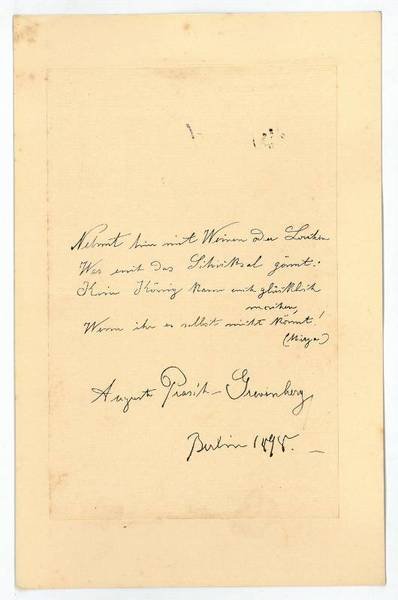 Nehmt hin mit Weinen oder Lachen
Was euch das Schicksal gönnt:
Kein König kann euch glücklich
machen,
Wenn ihr es selbst nicht könnt!
(Mirza)
Auguste Prasch-Grevenberg
Berlin 1898.